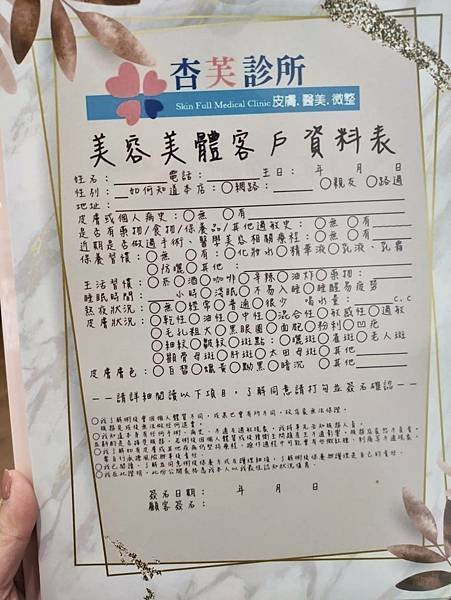 杏芙診所
Skin Full Medical Clinic 皮膚.醫美.微整
美容美體客戶資料表
姓名： 電話： 生日： 年 月 日
性別： 如何知道本店：○網路： ○親友 ○路過
地址：
皮膚或個人病史：○無 ○有
是否有藥物/食物/保養品/其他過敏史：○無 ○有
近期是否做過手術、醫學美容相關療程：○無 ○有
保養習慣：○無 ○有：○化妝水○精華液○乳液、乳霜
○防曬○其他：
生活習慣：○菸○酒○咖啡○辛辣○油炸○藥物：
睡眠時間： 小時○淺眠○不易入睡○睡醒易疲勞
熬夜狀況：○無○經常○普通○很少 喝水量： c.c
皮膚狀況：○乾性○油性○中性○混合性○敏感性○過敏
○毛孔粗大○黑眼圈○面皰○粉刺○凹疤
○細紋○皺紋○斑點：○曬斑○雀斑○老人斑
○顴骨母斑○肝斑○太田母斑○其他
皮膚膚色：○白皙○蠟黃○黝黑○暗沉○其他
——請詳細閱讀以下項目，了解同意請打勾並簽名確認——
簽名日期： 年 月 日
顧客簽名：